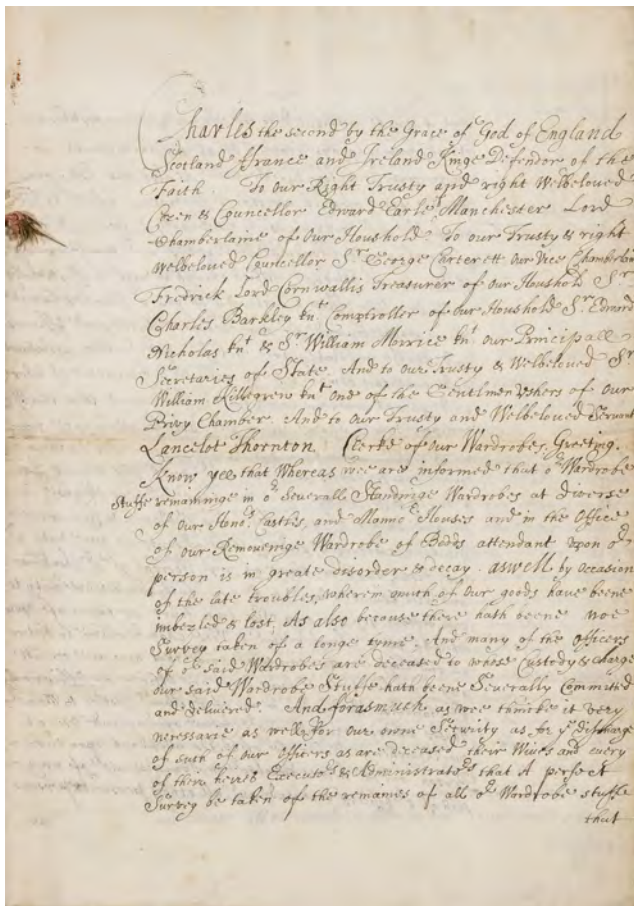 Charles the second by the Grace of God of England
Scotland ffrance and Ireland Kinge Defendor of the
Faith. To our Right Trusty and right Welbeloved
Cozen & Councellor Edward Earle Manchester Lord
Chamberlaine of our Houshold To our Trusty & right
welbeloved Councellor Sr George Carterett our Vice Chamberlain
Fredrick Lord Cornwallis Treasurer of our Houshold Sr
Charles Barkley knt Comptroller of our Houshold Sr Edward
Nicholas knt & Sr William Morrice knt our Principall
Secretaries of State. And to our Trusty & Welbeloved Sr
William Killegrew knt one of the Gentlmen Vshers of our
Privy Chamber. And to our Trusty and Welbeloved Servant
Lancelot Thornton. Clerke of our Wardrobes, Greeting.
Know yee that Whereas wee are informed that or Wardrobe
Stuffe remaininge in or Severall Standinge Wardrobes at diverse
of our Honors Castles, and Houses and in the Office
of our Removeinge Wardrobe of Bedds attendant upon or
person is in greate disorder & decay. aswell by occasion
of the late troubles, wherein much of our goods have beene
imbezled & lost. As also because there hath beene noe
Survey taken of a longe tyme. And many of the officers
of or said Wardrobes are deceased to whose Custody & charge
our said Wardrobe Stuffe hath beene Severally Committed
and delivered. And forasmuch as wee thincke it very
necessarie as well for our owne Security as for ye discharge
of such of our officers as are deceased their Wives and every
of their heires Executors & Administrators that A perfect
Survey be taken of the remaines of all or Wardrobe stuffe
that